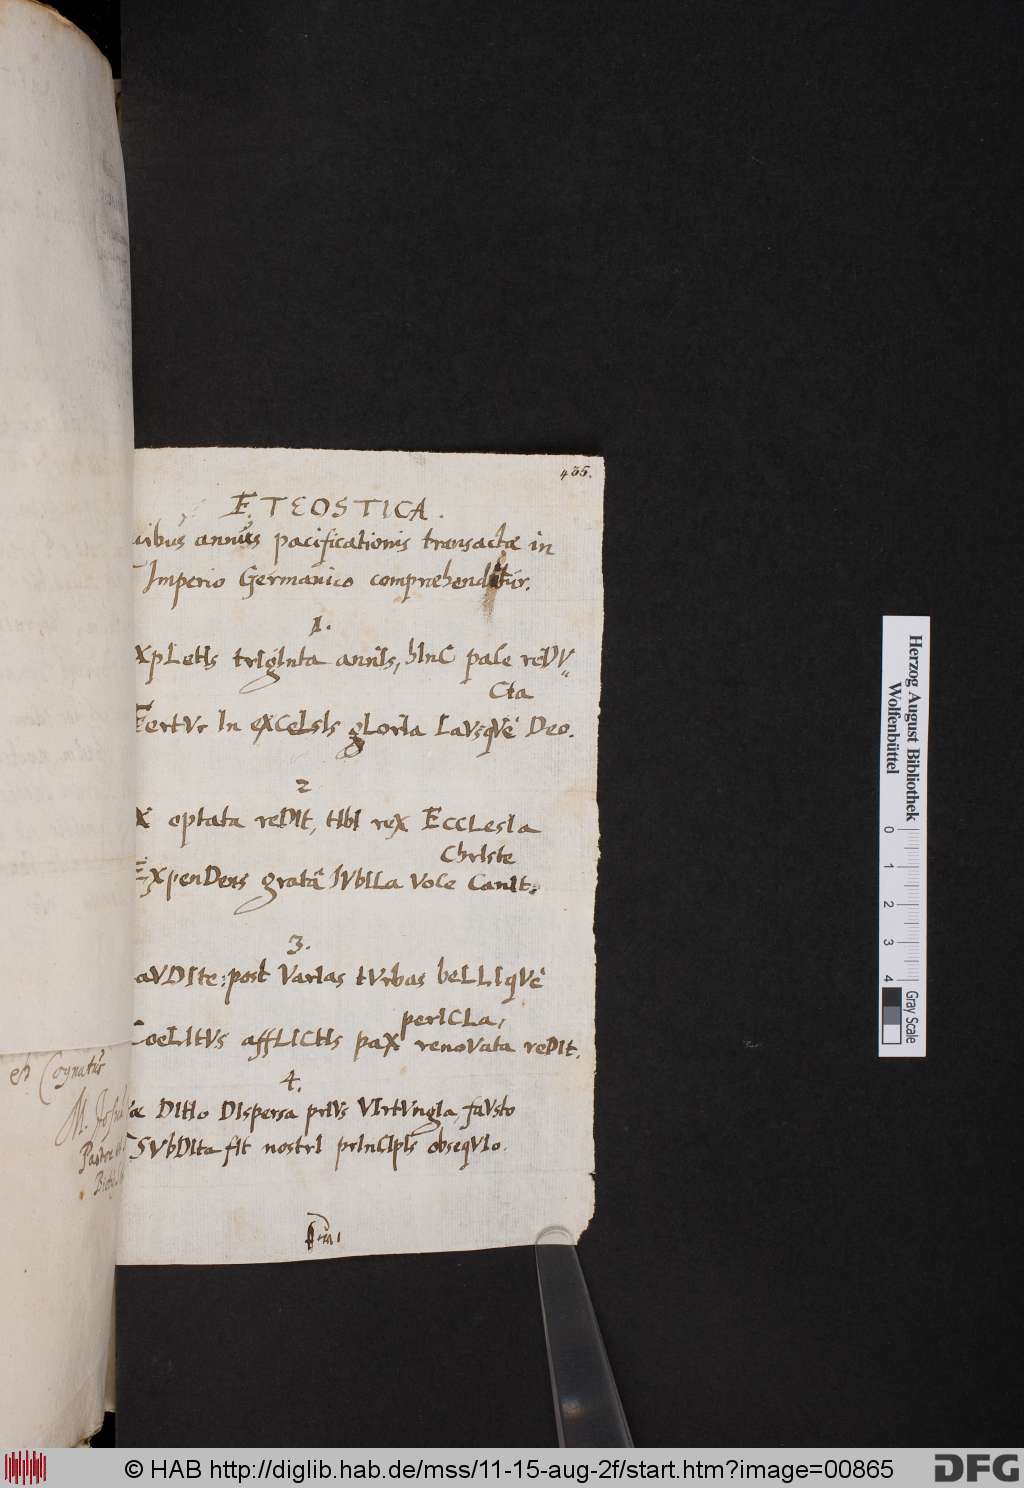 435.
ETEOSTICA.
uibus annus pacificationis transactæ in
Imperio Germanico comprehenditur.
1.
xpLetIs trIgInta annIs, hInC paCe reDV-
Cta
FertVr In exCeLsIs gLorIa LaVsqVè Deo.
2
X optata reDIt, tIbI rex EccLesIa
ChrIste
ExpenDens gratâ IVbILa VoCe CanIt.
3.
aVDIte: post VarIas tVrbas beLLIqVè
perICLa,
CoeLItVs affLICtIs paX renoVata reDIt.
4.
æ DItIo DIspersa prIVs VIrtVngIa faVsto
SVbDIta fIt nostrI prInCIpIs obseqVIo.
et Cognatus
M.
Herzog August Bibliothek
Wolfenbüttel
0 1 2 3 4
Gray Scale
© HAB http://diglib.hab.de/mss/11-15-aug-2f/start.htm?image=00865
DFG